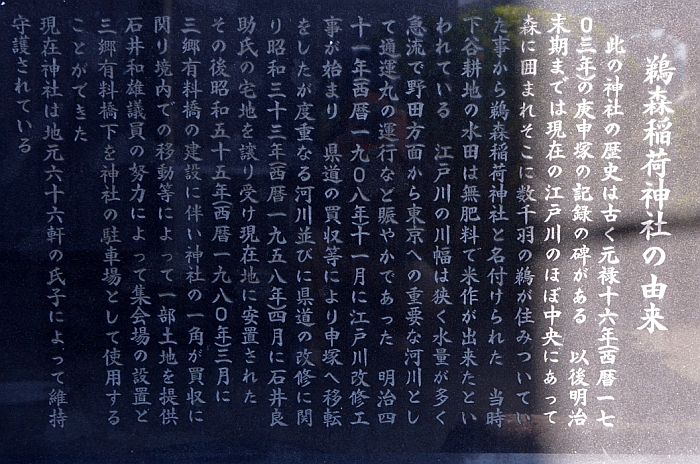 鵜森稲荷神社の由来
此の神社の歴史は古く元禄十六年(西暦一七
〇三年)の庚申塚の記録の碑がある 以後明治
末期までは現在の江戸川のほぼ中央にあって
森に囲まれそこに数千羽の鵜が住みついてい
た事から鵜森稲荷神社と名付けられた 当時
下谷耕地の水田は無肥料で米作が出来たとい
われている 江戸川の川幅は狭く水量が多く
急流で野田方面から東京への重要な河川とし
て通運丸の運行など賑やかであった 明治四
十一年(西暦一九〇八年)十一月に江戸川改修工
事が始まり 県道の買収等により申塚へ移転
をしたが度重なる河川並びに県道の改修に関
り昭和三十三年(西暦一九五八年)四月に石井良
助氏の宅地を譲り受け現在地に安置された
その後昭和五十五年(西暦一九八〇年)三月に
三郷有料橋の建設に伴い神社の一角が買収に
関り境内での移動等によって一部土地を提供
石井和雄議員の努力によって集会場の設置と
三郷有料橋下を神社の駐車場として使用する
ことができた
現在神社は地元六十六軒の氏子によって維持
守護されている